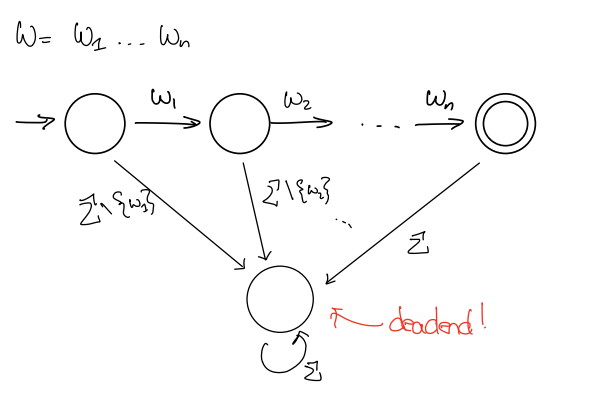 w = w₁ ... wₙ
w₁ w₂ ... wₙ
Σ\{w₁} Σ\{w₂} ... Σ
deadend!
Σ